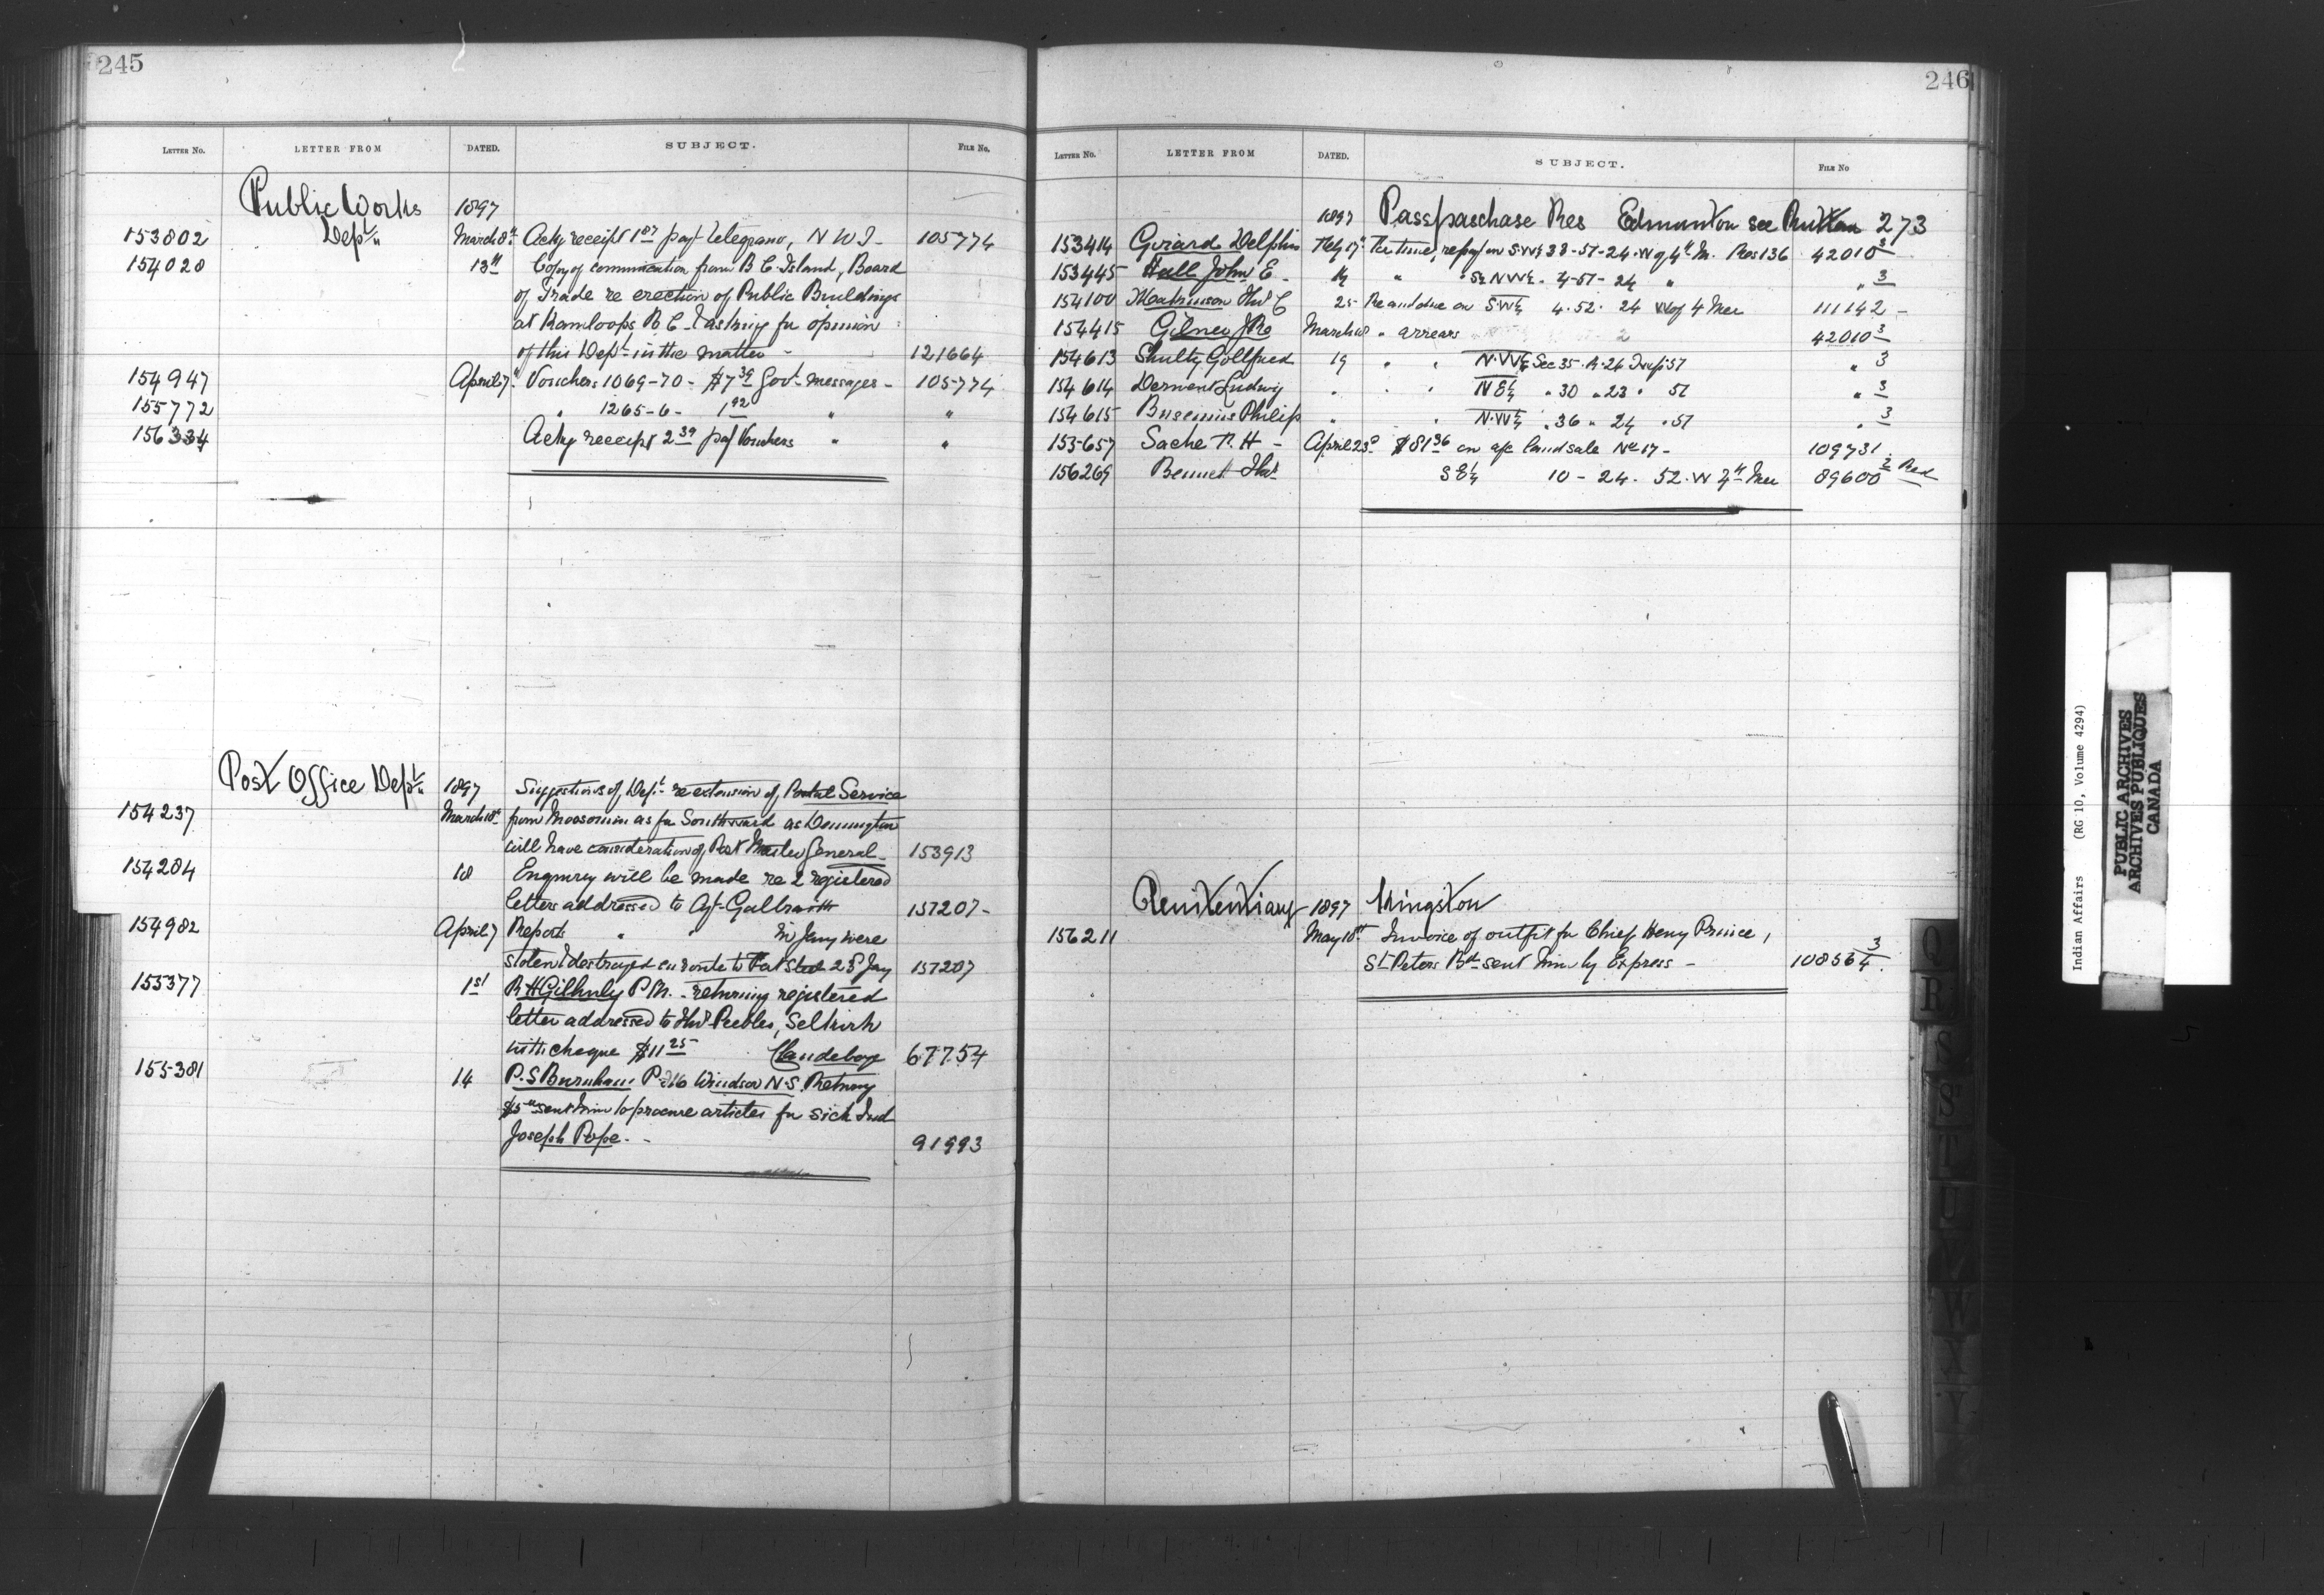 245
LETTER No. LETTER FROM DATED. SUBJECT. FILE No.
Public Works 1897
153802 Dept. March 8th Ackg receipt 1.87 payt telegrams, N W T - 105774
154020 13th Copy of communication from B C Island, Board
of Trade re erection of Public Buildings
at Kamloops B C & asking for opinion
of this Dept in the matter - 121664
154947 April 7 Vouchers 1069-70 - $7.39 Govt messages - 105774
155772 " 1265-6 - 1.92 " "
156334 Ackg receipt 2.39 payt Vouchers " "
Post Office Dept. 1897 Suggestions of Dept re extension of Postal Service
154237 March 18th from Moosomin as far Southward as
will have consideration of Post Master General - 153913
154284 18 Enquiry will be made re 2 registered
letters addressed to Agt Galbraith 157207 -
154982 April 7 Reports " in Jany were
stolen & destroyed en route to 28 Jany 157207
155377 1st R H Gilhuly P M. - returning registered
letter addressed to Thos Peebles, Selkirk
with cheque $11.25 Clandeboye 67754
155381 14 P. S Burnham P. M Windsor N. S. Returng
$5.00 sent him to procure articles for sick Ind
Joseph Pope. - 91993
246
LETTER No. LETTER FROM DATED. SUBJECT. FILE No
1897 Passpaschase Res Edmonton see Rutton 273
153414 Girard Delphis Feby 17 Re time, re payt on SW¼ 38-51-24. W of 4th M. Res 136 42010 3
153445 Hall John E - " S½ NW¼ . 4-51-24 " " 3
154100 Thos C 25 Re amt due on S.W¼ 4. 52. 24 W of 4 Mer 111142 -
154415 March " arrears 42010 3
154613 Shultz Gottfried 19 " " N.W¼ Sec 35. R. 24 Twp 51 " 3
154614 Ludwig " " N E¼ " 30 " 23 " 51 " 3
154615 Philip " " N.W¼ " 36 " 24 " 51 " 3
155657 Sache R. H - April 23d $81.36 on a/c land sale No 17 - 109731
156269 Bennet Thos S E¼ 10 - 24. 52. W 4th Mer 89600 2 Red
Penitentiary 1897 Kingston
156211 May 18th Invoice of outfit for Chief Henry Prince,
St Peters Bd sent him by Express - 108564 3
Q
R
S
S
T
U
V
W
X
Y
Indian Affairs (RG 10, Volume 4294)
PUBLIC ARCHIVES
ARCHIVES PUBLIQUES
CANADA